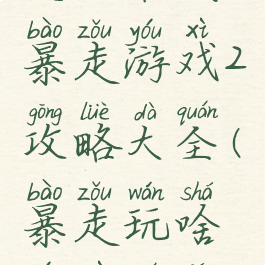 bào zǒu yóu xì
暴走游戏2
gōng lüè dà quán
攻略大全(
bào zǒu wán shá
暴走玩啥